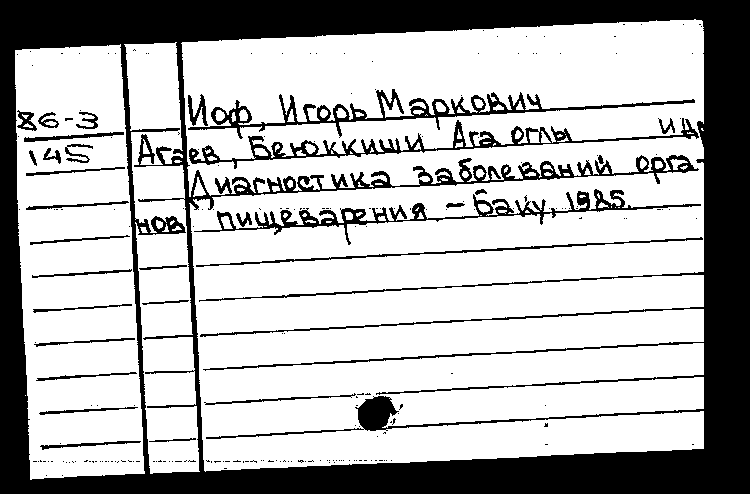 Иоф, Игорь Маркович
86-3
145 Агаев, Беюккиши Ага оглы и др
Диагностика заболеваний орга-
нов пищеварения. - Баку, 1985.